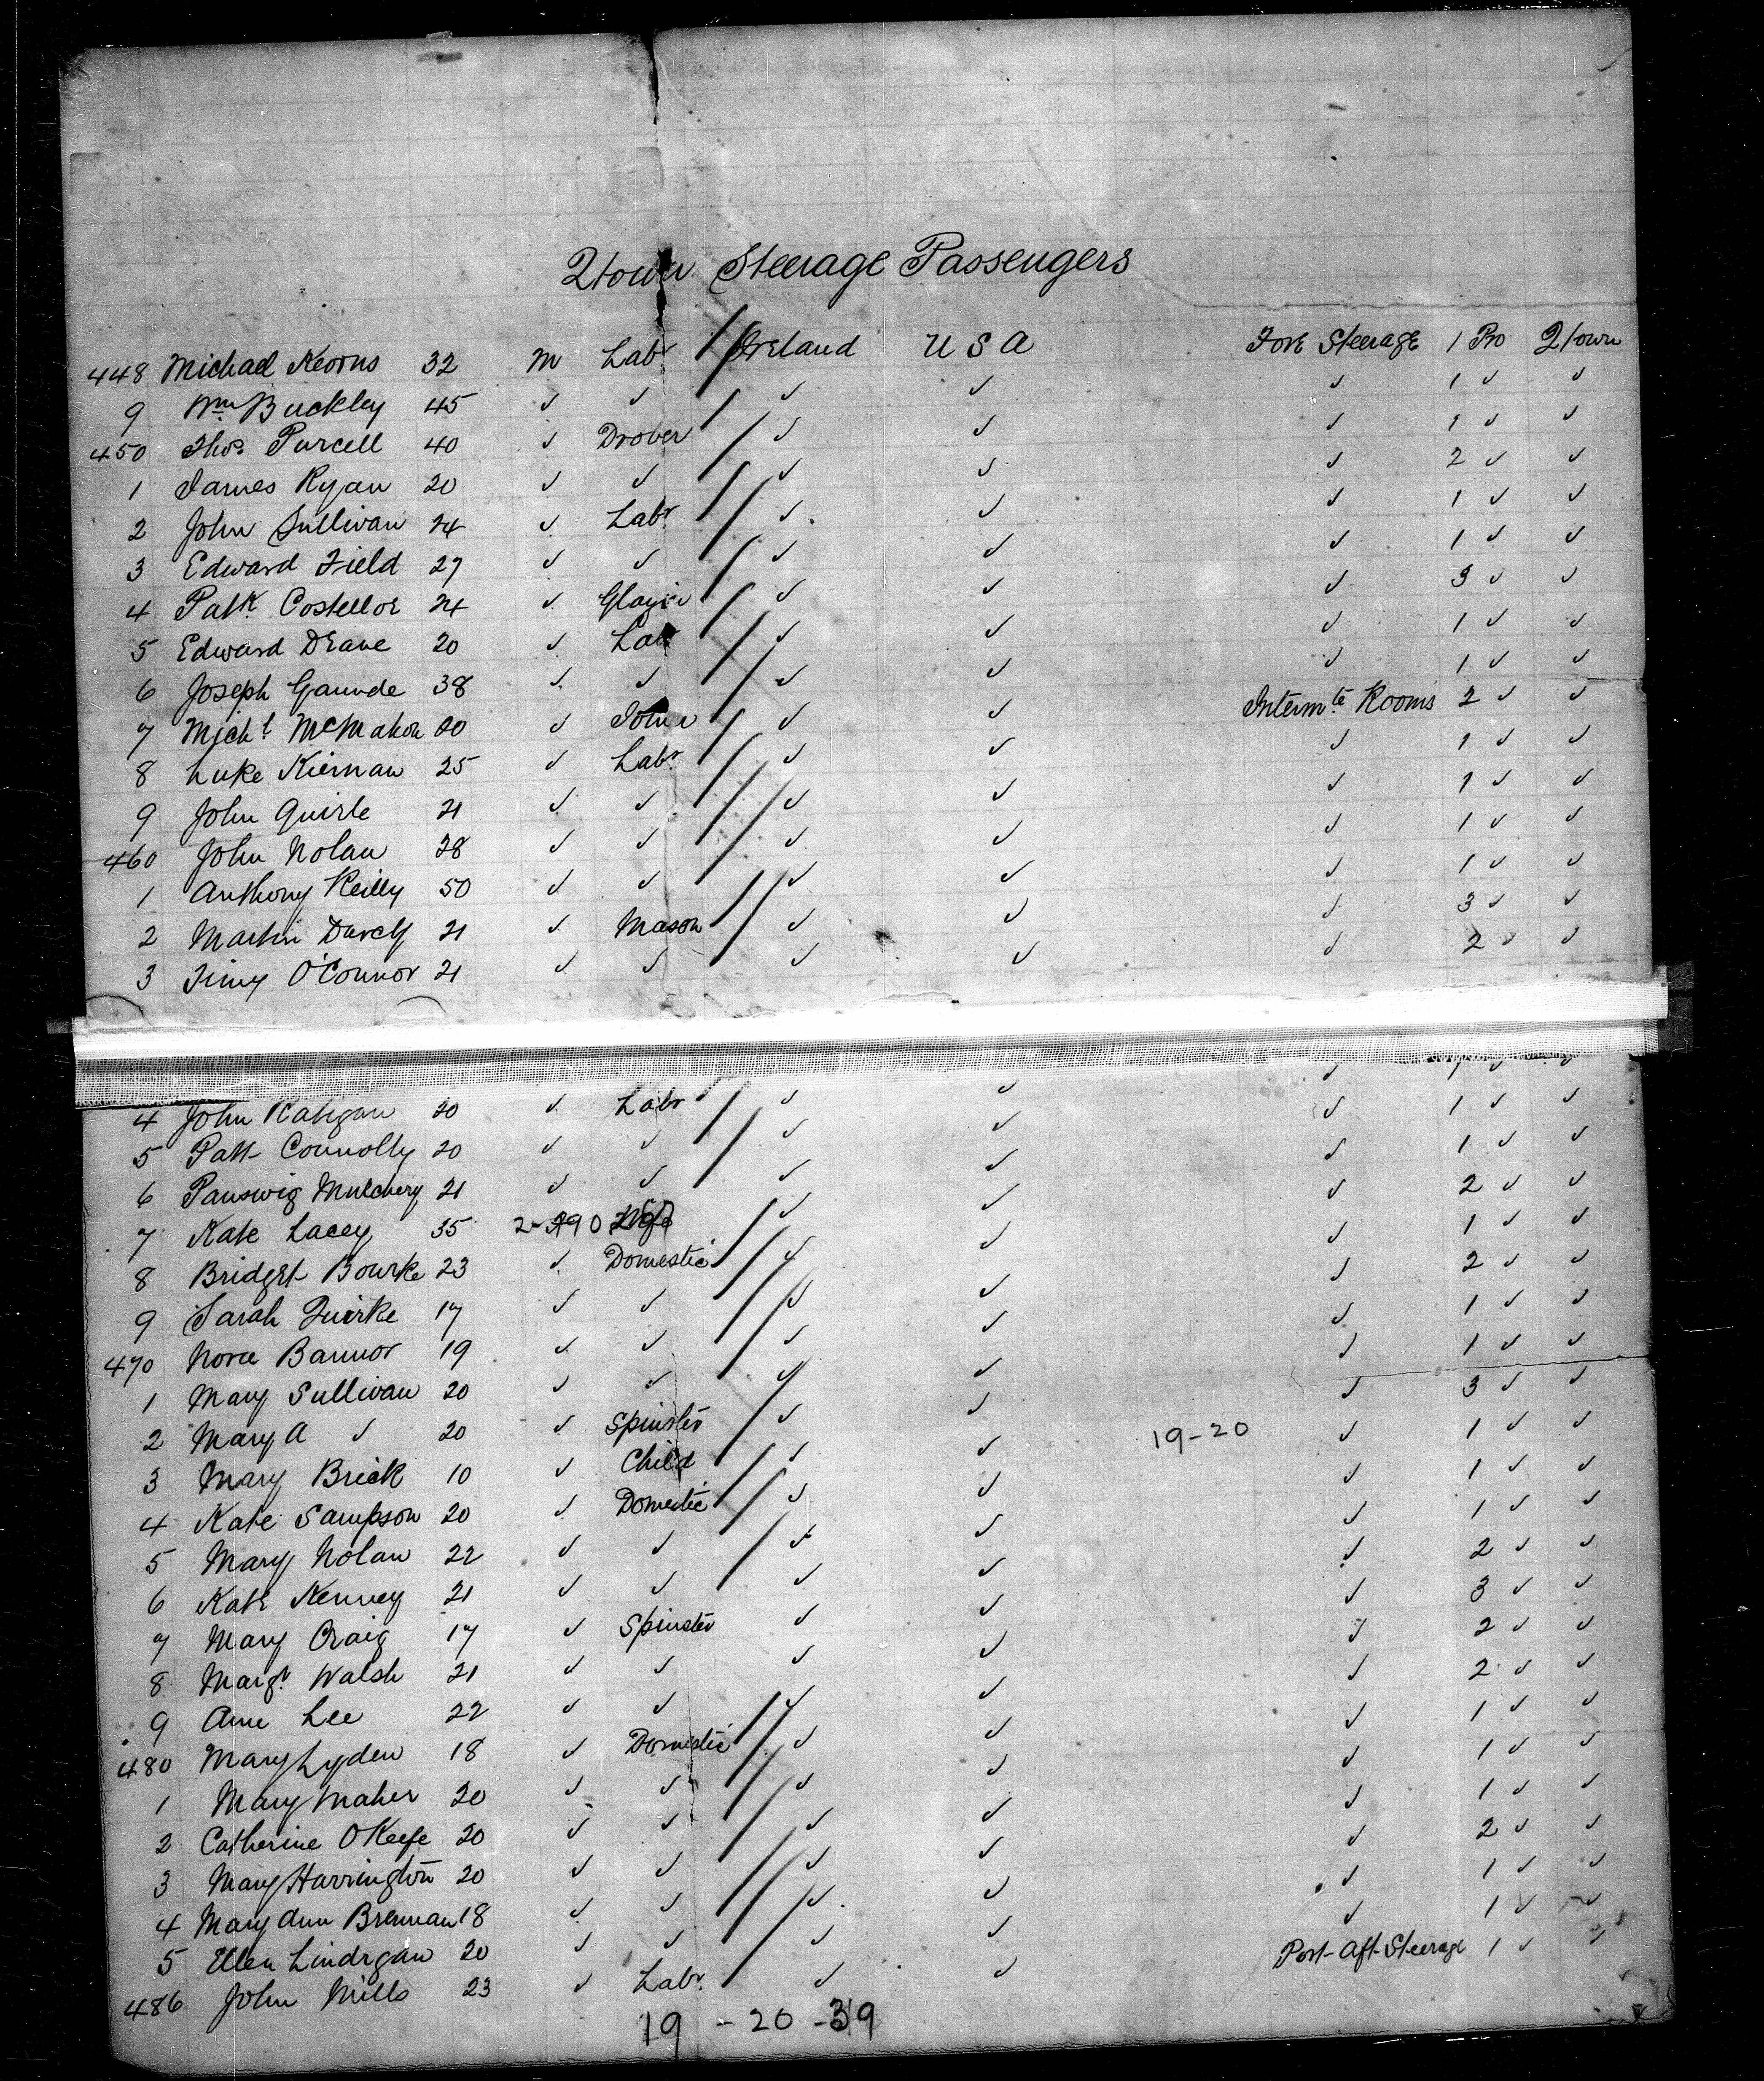 Qtown Steerage Passengers
448 Michael Kearns 32 M Labr Ireland U S A Fore Steerage 1 Pro Qtown
9 Wm Buckley 45 ✓ ✓ ✓ ✓ ✓ 1 ✓ ✓
450 Thos. Purcell 40 ✓ Drover ✓ ✓ ✓ 1 ✓ ✓
1 James Ryan 20 ✓ ✓ ✓ ✓ ✓ 2 ✓ ✓
2 John Sullivan 24 ✓ Labr ✓ ✓ ✓ 1 ✓ ✓
3 Edward Field 27 ✓ ✓ ✓ ✓ ✓ 1 ✓ ✓
4 Patk. Costelloe 24 ✓ ✓ ✓ ✓ 3 ✓ ✓
5 Edward Deane 20 ✓ Labr ✓ ✓ ✓ 1 ✓ ✓
6 Joseph Gaunde 38 ✓ ✓ ✓ ✓ ✓ 1 ✓ ✓
7 Michl. McMahon 20 ✓ ✓ ✓ Intermte Rooms 2 ✓ ✓
8 Luke Kiernan 25 ✓ Labr. ✓ ✓ ✓ 1 ✓ ✓
9 John Quirke 21 ✓ ✓ ✓ ✓ ✓ 1 ✓ ✓
460 John Nolan 28 ✓ ✓ ✓ ✓ ✓ 1 ✓ ✓
1 Anthony Reilly 50 ✓ ✓ ✓ ✓ ✓ 1 ✓ ✓
2 Martin Darcy 21 ✓ Mason ✓ ✓ ✓ 3 ✓ ✓
3 Timy O'Connor 21 ✓ ✓ ✓ ✓ ✓ 2 ✓ ✓
4 John Ratigan 20 ✓ Labr ✓ ✓ ✓ 1 ✓ ✓
5 Patk Connolly 20 ✓ ✓ ✓ ✓ ✓ 1 ✓ ✓
6 Mulchery 21 ✓ ✓ ✓ ✓ ✓ 1 ✓ ✓
7 Kate Lacey 35 Wife ✓ ✓ ✓ 2 ✓ ✓
8 Bridget Bourke 23 ✓ Domestic ✓ ✓ ✓ 1 ✓ ✓
9 Sarah Quirke 17 ✓ ✓ ✓ ✓ ✓ 2 ✓ ✓
470 Nora Bannor 19 ✓ ✓ ✓ ✓ ✓ 1 ✓ ✓
1 Mary Sullivan 20 ✓ ✓ ✓ ✓ ✓ 1 ✓ ✓
2 Mary A ✓ 20 ✓ Spinster ✓ ✓ ✓ 3 ✓ ✓
3 Mary Brick 10 ✓ Child ✓ ✓ 19-20 ✓ 1 ✓ ✓
4 Kate Sampson 20 ✓ Domestic ✓ ✓ ✓ 1 ✓ ✓
5 Mary Nolan 22 ✓ ✓ ✓ ✓ ✓ 1 ✓ ✓
6 Kate Kenney 21 ✓ ✓ ✓ ✓ ✓ 2 ✓ ✓
7 Mary Craig 17 ✓ Spinster ✓ ✓ ✓ 3 ✓ ✓
8 Margt. Walsh 21 ✓ ✓ ✓ ✓ ✓ 2 ✓ ✓
9 Anne Lee 22 ✓ ✓ ✓ ✓ ✓ 2 ✓ ✓
480 Mary Lyden 18 ✓ Domestic ✓ ✓ ✓ 1 ✓ ✓
1 Mary Maher 20 ✓ ✓ ✓ ✓ ✓ 1 ✓ ✓
2 Catherine OKeefe 20 ✓ ✓ ✓ ✓ ✓ 1 ✓ ✓
3 Mary Harrington 20 ✓ ✓ ✓ ✓ ✓ 2 ✓ ✓
4 Mary Ann Brennan 18 ✓ ✓ ✓ ✓ ✓ 1 ✓ ✓
5 Ellen Lindrgan 20 ✓ ✓ ✓ ✓ ✓ 1 ✓ ✓
486 John Mills 23 ✓ Labr. ✓ ✓ Port-Aft-Steerage 1 ✓ ✓
19 - 20 - 39